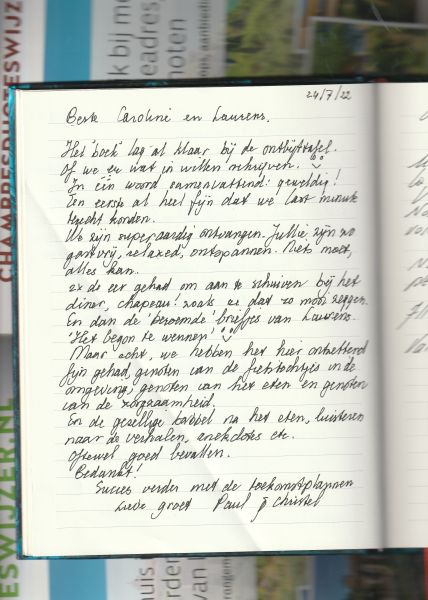 24/7/22
Beste Caroline en Laurens.
Het 'boek' lag al klaar bij de ontbijttafel.
Of we er wat in willen schrijven.
In één woord samenvattend: geweldig!
Ten eerste al heel fijn dat we last minute
terecht konden.
We zijn superaardig ontvangen. Jullie zijn zo
gastvrij, relaxed, ontspannen. Niets moet,
alles kan.
de eer gehad om aan te schuiven bij het
diner, chapeau! zoals ze dat zo mooi zeggen.
En dan de 'beroemde' briefjes van Laurens.
'Het begon te wennen'!
Maar echt, we hebben het hier ontzettend
fijn gehad, genoten van de fietstochtjes in de
omgeving, genoten van het eten en genoten
van de zorgzaamheid.
En de gezellige babbel na het eten, luisteren
naar de verhalen, anekdotes etc.
Oftewel goed bevallen.
Bedankt!
Succes verder met de toekomstplannen
Lieve groet Paul & Christel
CHAMPRESDUCHESWIJZ
ESWIJZER.NL
k bij me
eadres,
noten
uis
rden
van l